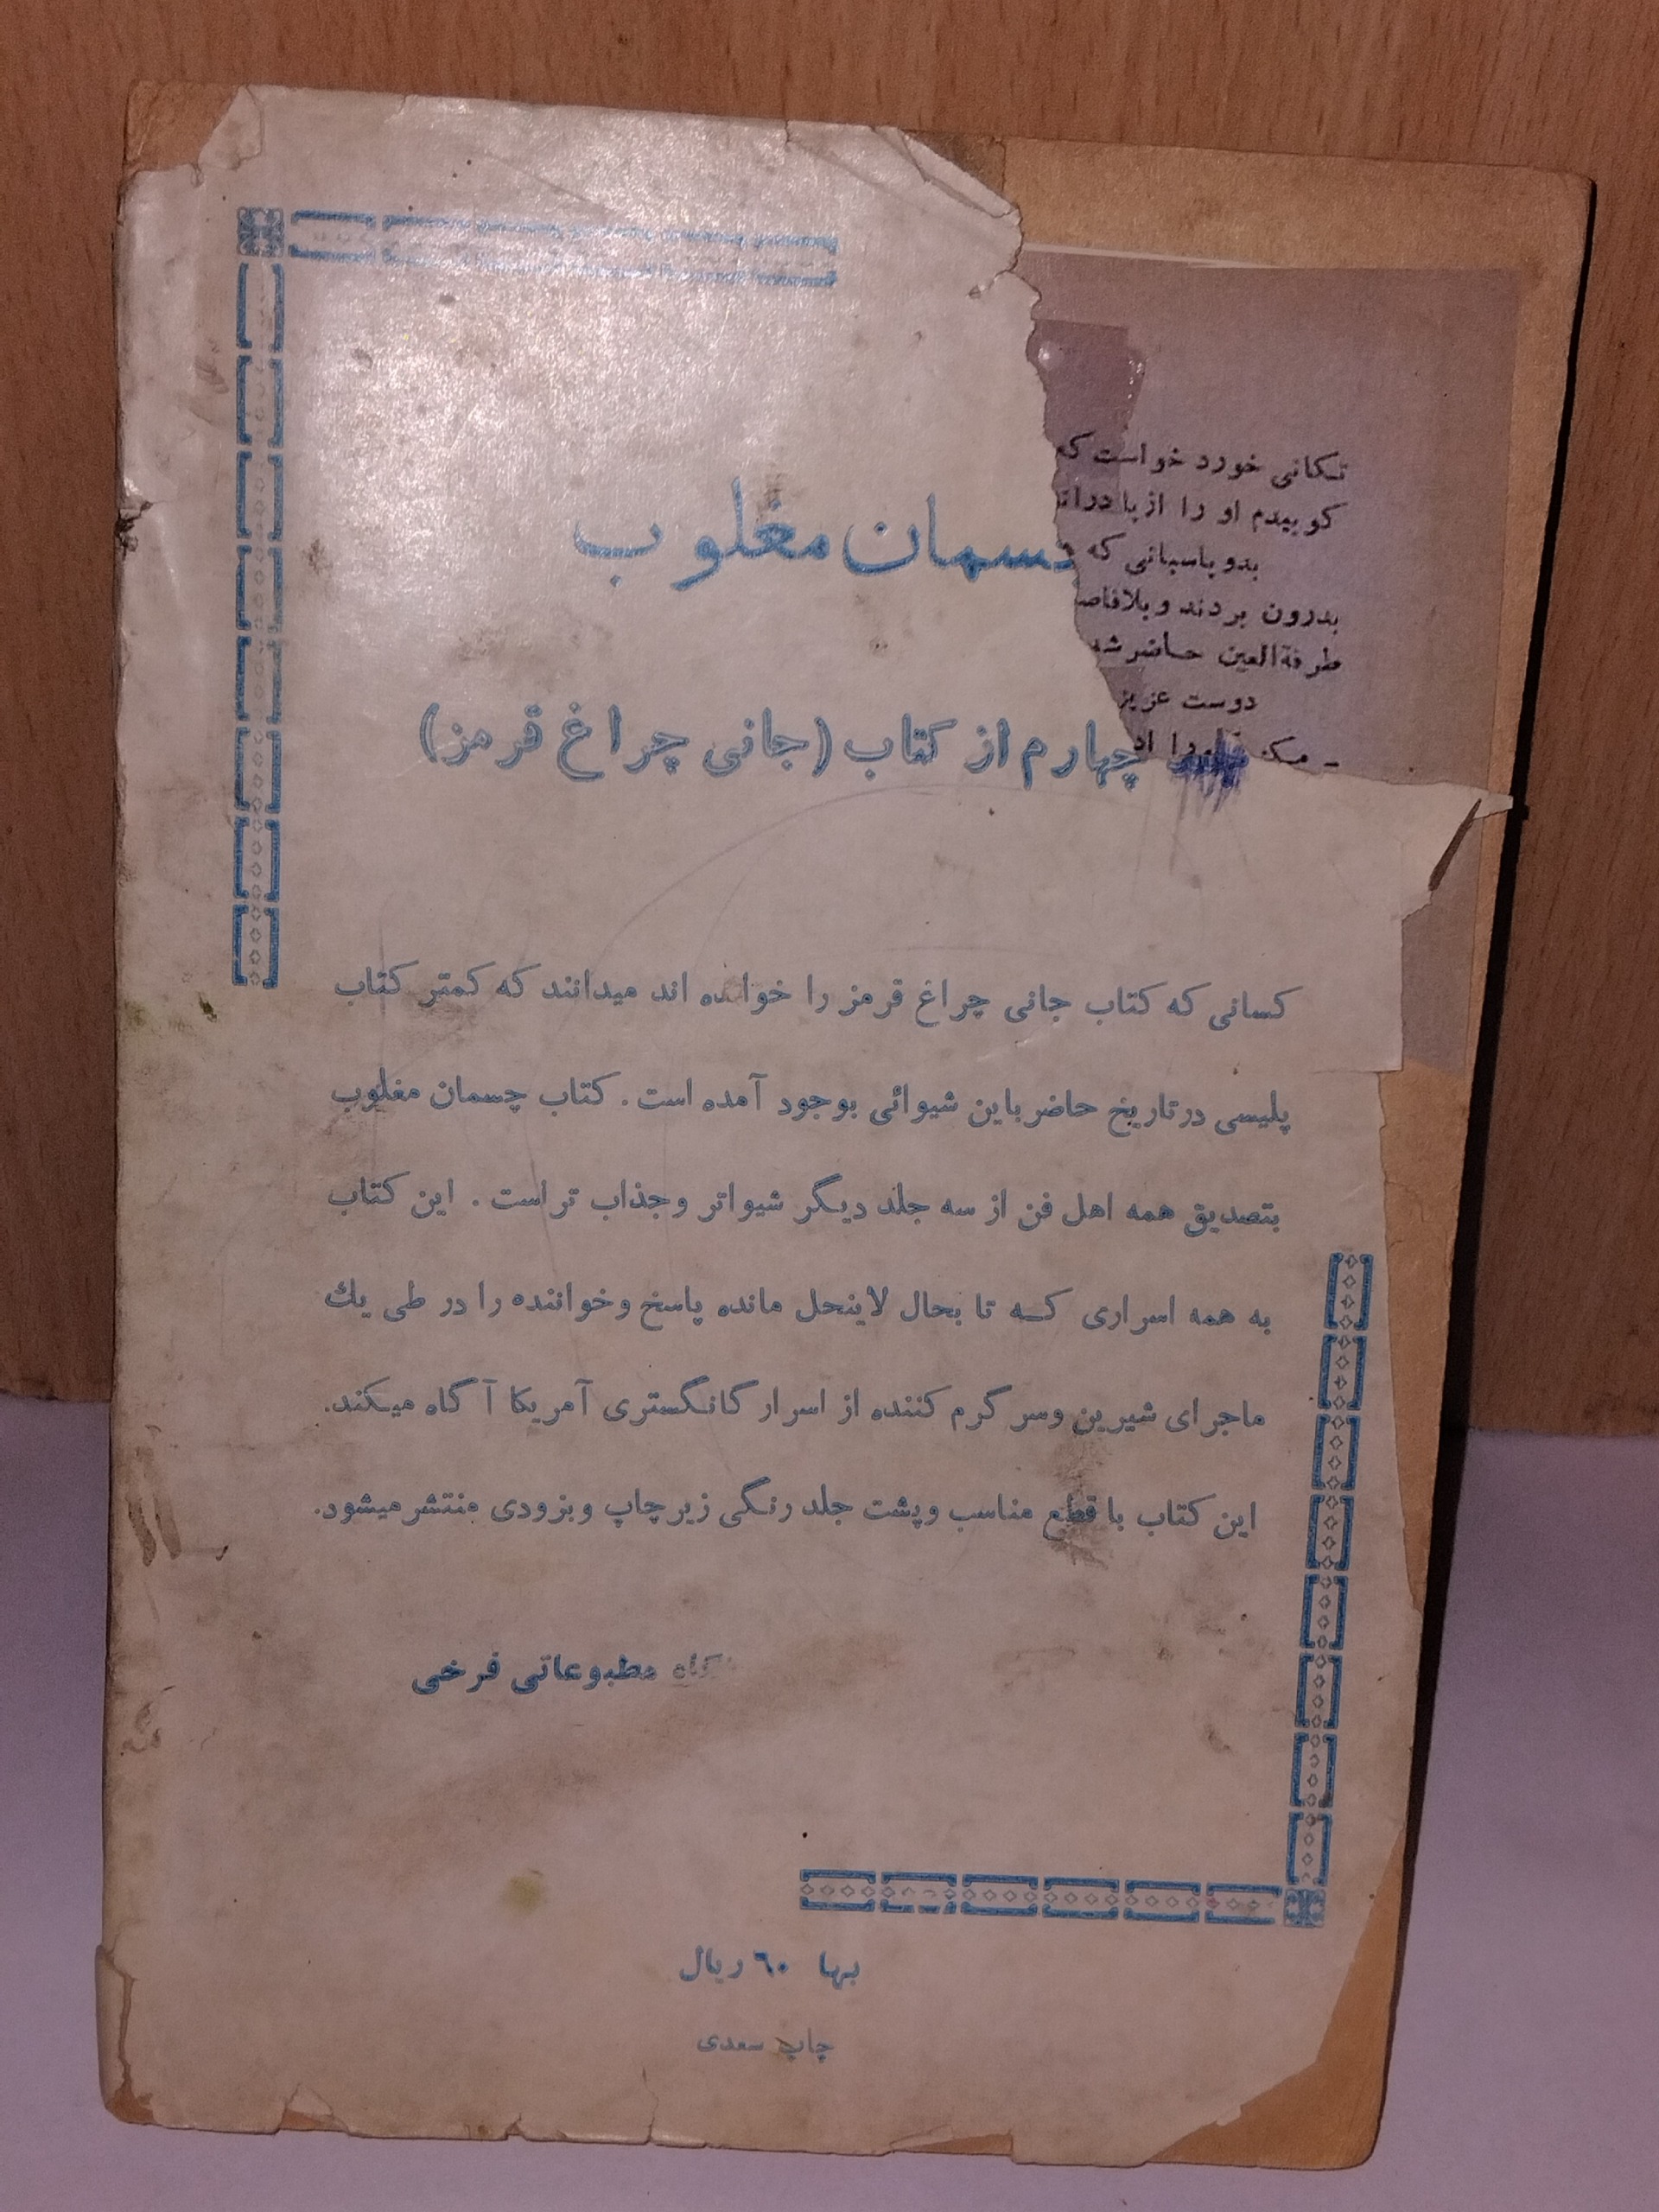 تکانی خورد خواست که
کوبیدم او را از پا درا
بدو پاسبانی که
بدرون بردند و بلافاصـ
طرفة‌العین حاضر شد
دوست عزیز
سمان مغلوب
چهارم از کتاب (جانی چراغ قرمز)
کسانی که کتاب جانی چراغ قرمز را خوانده اند میدانند که کمتر کتاب
پلیسی در تاریخ حاضر باین شیوائی بوجود آمده است. کتاب چسمان مغلوب
بتصدیق همه اهل فن از سه جلد دیگر شیواتر و جذاب تر است. این کتاب
به همه اسراری که تا بحال لاینحل مانده پاسخ و خواننده را در طی یك
ماجرای شیرین و سر گرم کننده از اسرار گانگستری آمریکا آگاه میکند.
این کتاب با قطع مناسب و پشت جلد رنگی زیر چاپ و بزودی منتشر میشود.
گاه مطبوعاتی فرخی
بها ٦٠ ریال
چاپ سعدی